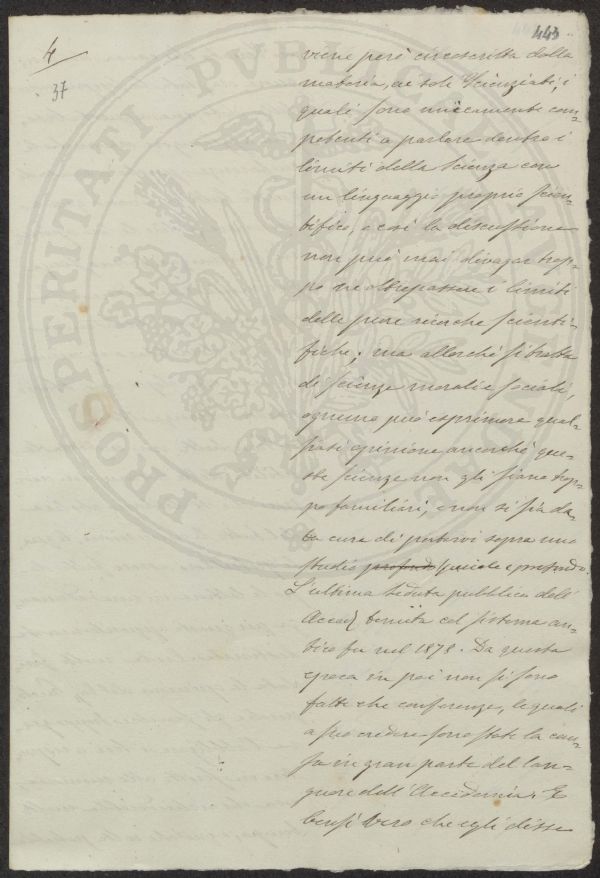 443
4
37
viene però circoscritta dalla
materia, ai soli Scienziati, i
quali sono unicamente com-
petenti a parlare dentro i
limiti della Scienza con
un linguaggio proprio scien-
tifico, e così la discussione
non può mai divagar trop-
po ne oltrepassare i limiti
delle pure ricerche scienti-
fiche; ma allorché si tratta
di scienze morali e sociali,
ognuno può esprimere qual-
siasi opinione ancorché que-
ste scienze non gli siano trop-
po familiari, e non si sia da-
ta cura di portarvi sopra uno
studio profond speciale e profondo.
L'ultima seduta pubblica dell'
Accad tenuta col sistema an-
tico fu nel 1878. Da questa
epoca in poi non si sono
fatte che conferenze, le quali
a suo credere sono state la cau-
sa in gran parte del lan-
guore dell'Accademia. E
bensì vero che egli disse
PROSPERITATI PUBLICAE